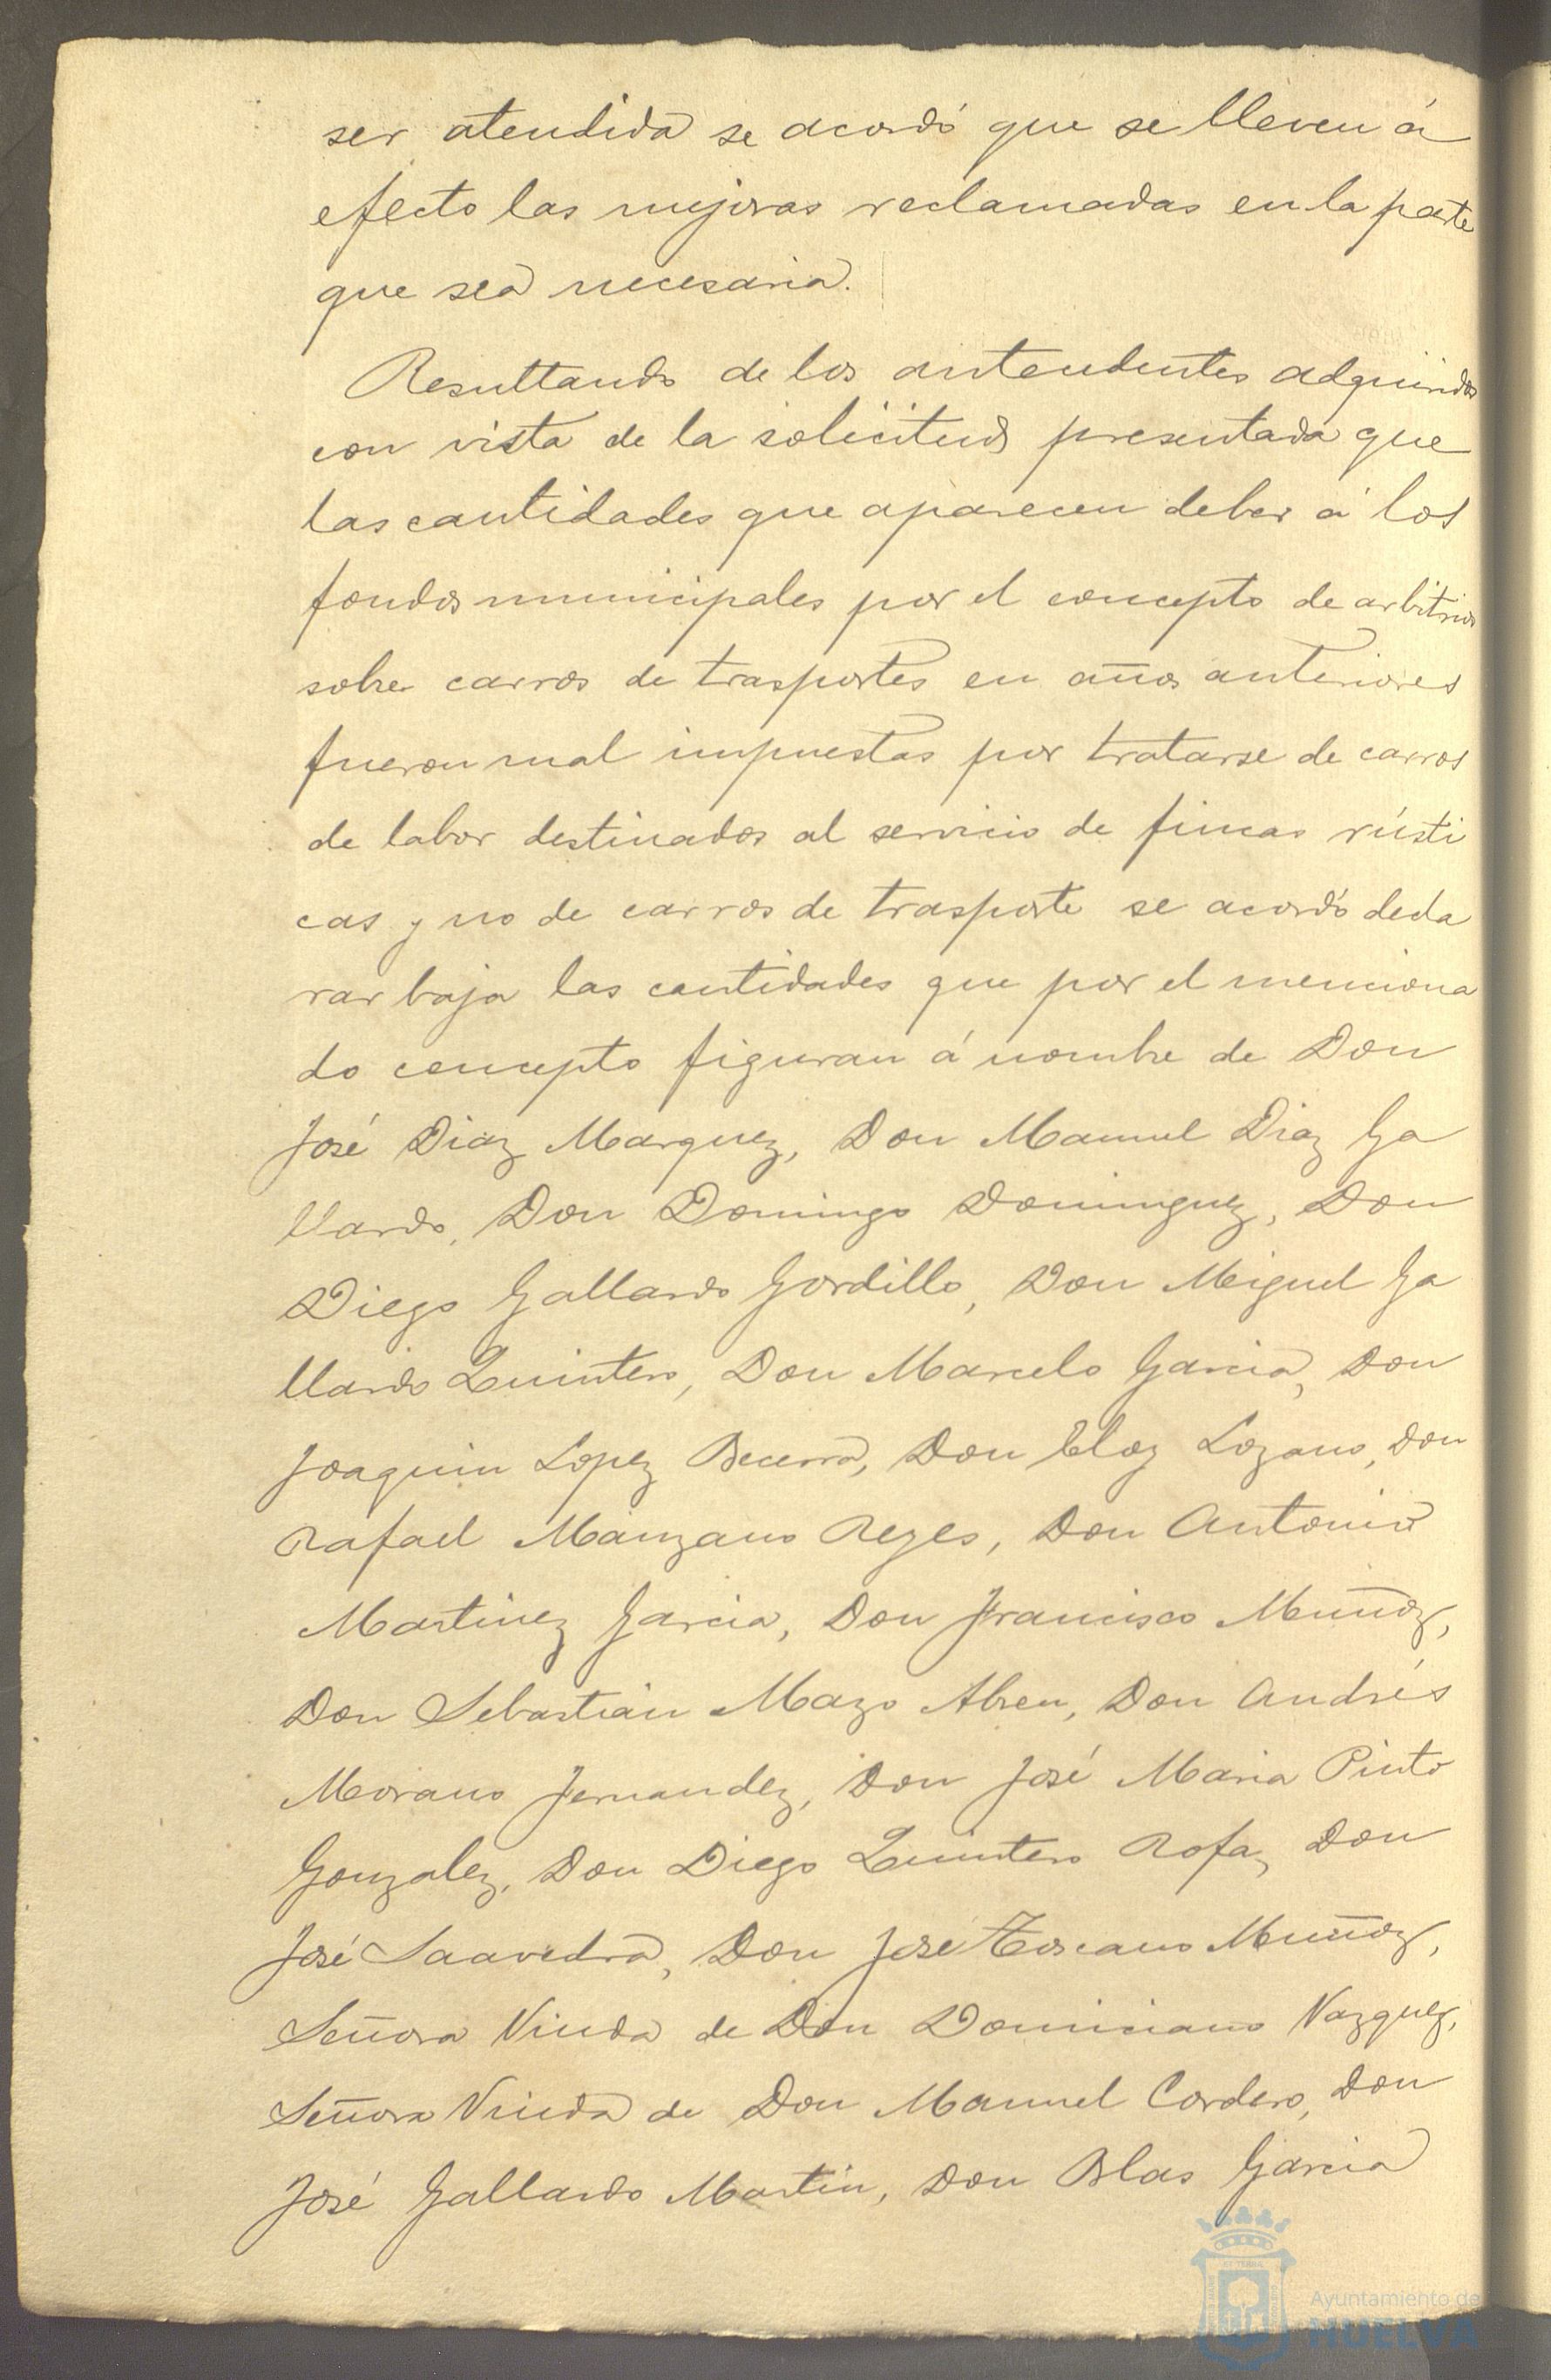 ser atendida se acordó que se lleven á
efecto las mejoras reclamadas en la parte
que sea necesaria.
Resultando de los antecedentes adquiridos
con vista de la solicitud presentada que
las cantidades que aparecen deber á los
fondos municipales por el concepto de arbitrios
sobre carros de trasportes en años anteriores
fueron mal impuestas por tratarse de carros
de labor destinados al servicio de fincas rústi
cas y no de carros de trasporte se acordó decla
rar baja las cantidades que por el menciona
do concepto figuran á nombre de Don
José Diaz Marquez, Don Manuel Diaz Ga
llardo, Don Domingo Dominguez, Don
Diego Gallardo Gordillo, Don Miguel Ga
llardo Quintero, Don Marcelo Garcia, Don
Joaquin Lopez Becerra, Don Eloy Lozano, Don
Rafael Manzano Reyes, Don Antonio
Martinez Garcia, Don Francisco Muñoz,
Don Sebastián Mazo Abreu, Don Andrés
Morano Fernandez, Don José Maria Pinto
Gonzalez, Don Diego Quintero Rofa, Don
José Saavedra, Don José Toscano Muñoz,
Señora Viuda de Don Dominiciano Vazquez,
Señora Viuda de Don Manuel Cordero, Don
José Gallardo Martin, Don Blas Garcia
Ayuntamiento de
HUELVA